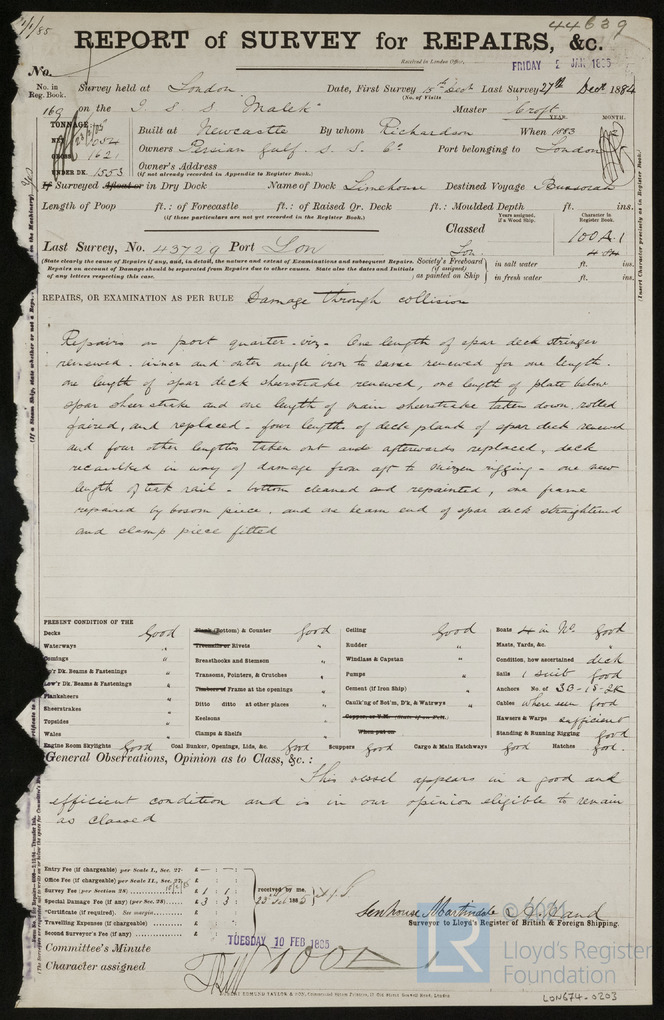 1/1/85
44639
REPORT of SURVEY for REPAIRS, &c.
Received in London Office, FRIDAY 2 JAN 1885
No.
No. in Reg. Book. Survey held at London Date, First Survey 15th Sept Last Survey 27th Decr 1884
(No. of Visits
169 on the I. S. S "Malek" Master Croft
TONNAGE: Built at Newcastle By whom Richardson When 1883 YEAR. MONTH.
NET 1052
GROSS 1621 Owners Persian Gulf S. S. Co Port belonging to London
UNDER DK. 1553 Owner's Address
(if not already recorded in Appendix to Register Book.)
If Surveyed Afloat or in Dry Dock Name of Dock Limehouse Destined Voyage Bussorah
Length of Poop ft.: of Forecastle ft.: of Raised Qr. Deck ft.: Moulded Depth ft. ins.
(if these particulars are not yet recorded in the Register Book.)
Classed Years assigned, if a Wood Ship. Character in Register Book.
100A.1
Last Survey, No. 43729 Port Lon Lon
(State clearly the cause of Repairs if any, and, in detail, the nature and extent of Examinations and subsequent Repairs.
Repairs on account of Damage should be separated from Repairs due to other causes. State also the dates and Initials
of any letters respecting this case.
Society's Freeboard (if assigned) as painted on Ship in salt water ft. ins.
in fresh water ft. ins.
REPAIRS, OR EXAMINATION AS PER RULE Damage through collision
Repairs on port quarter - viz - One length of spar deck stringer
renewed - inner and outer angle iron to same renewed for one length -
one length of spar deck sheerstrake renewed, one length of plate below
spar sheerstrake and one length of main sheerstrake taken down, rolled
faired, and replaced - four lengths of deck plank of spar deck renewed
and four other lengths taken out and afterwards replaced, deck
recaulked in way of damage from aft to mizen rigging - one new
length of teak rail - bottom cleaned and repainted, one frame
repaired by bosom piece, and one beam end of spar deck straightened
and clamp piece fitted
PRESENT CONDITION OF THE
Decks Good
Waterways "
Comings "
Up'r Dk. Beams & Fastenings "
Low'r Dk. Beams & Fastenings "
Planksheers "
Sheerstrakes "
Topsides "
Wales "
Plank (Bottom) & Counter Good
Treenails or Rivets "
Breasthooks and Stemson "
Transoms, Pointers, & Crutches "
Timbers or Frame at the openings "
Ditto ditto at other places "
Keelsons "
Clamps & Shelfs "
Ceiling Good
Rudder "
Windlass & Capstan "
Pumps "
Cement (if Iron Ship) "
Caulk'ng of Bot'm, D'k, & Watrwys "
Copper, or Y.M. (State if on Felt.)
When put on
Boats 4 in No. Good
Masts, Yards, &c. "
Condition, how ascertained deck
Sails 1 suit Good
Anchors No. of 3B-1S-2K
Cables where seen good
Hawsers & Warps sufficient
Standing & Running Rigging Good
Engine Room Skylights Good Coal Bunker, Openings, Lids, &c. Good Scuppers Good Cargo & Main Hatchways Good Hatches Good.
General Observations, Opinion as to Class, &c. :
This vessel appears in a good and
efficient condition and is in our opinion eligible to remain
as classed
Entry Fee (if chargeable) per Scale I., Sec. 27. £ - : :
Office Fee (if chargeable) per Scale II., Sec. 27. £ : :
Survey Fee (per Section 28) £ 1 : 1 :
Special Damage Fee (if any) (per Sec. 28) £ 3 : 3 :
*Certificate (if required). See margin £ : :
Travelling Expenses (if chargeable) £ : :
Second Surveyor's Fee (if any) £ : :
received by me,
23rd Feb 1885
Senhouse Martindale
Surveyor to Lloyd's Register of British & Foreign Shipping.
Committee's Minute TUESDAY 10 FEB 1885
Character assigned 100A1
© 2021
LR
Lloyd's Register
Foundation
LON674-0203